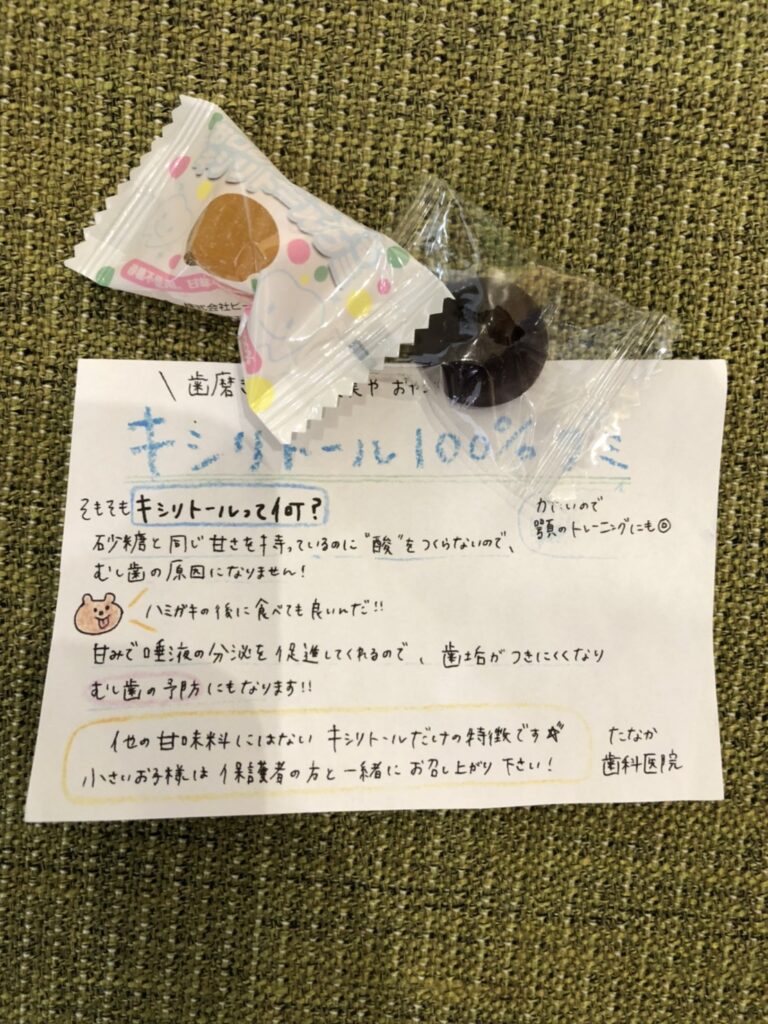 歯磨き
やおや
キシリトール100%グミ
そもそもキシリトールって何？
かたいので
顎のトレーニングにも◎
砂糖と同じ甘さを持っているのに"酸"をつくらないので、
むし歯の原因になりません！
ハミガキの後に食べても良いんだ!!
甘みで唾液の分泌を促進してくれるので、歯垢がつきにくくなり
むし歯の予防にもなります!!
他の甘味料にはないキシリトールだけの特徴です
小さいお子様は保護者の方と一緒にお召し上がり下さい！
たなか
歯科医院